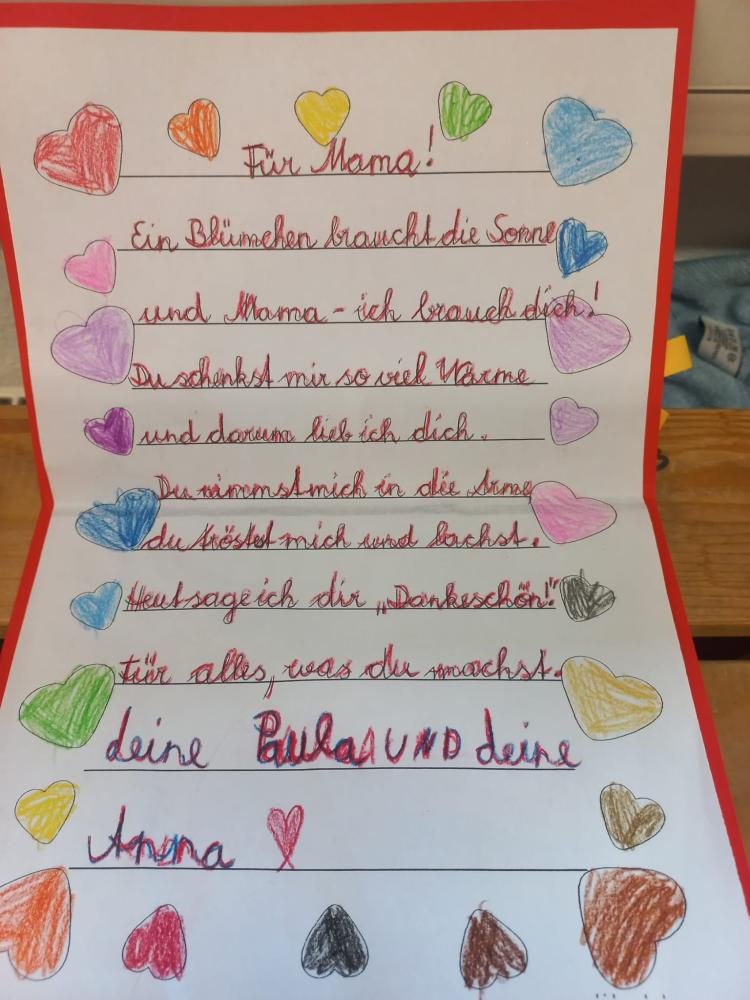 Für Mama!
Ein Blümchen braucht die Sonne
und Mama - ich brauch dich!
Du schenkst mir so viel Wärme
und darum lieb ich dich.
Du nimmst mich in die Arme
du tröstest mich und lachst.
Heut sage ich dir „Dankeschön!"
für alles, was du machst.
deine Paula UND deine
Anna